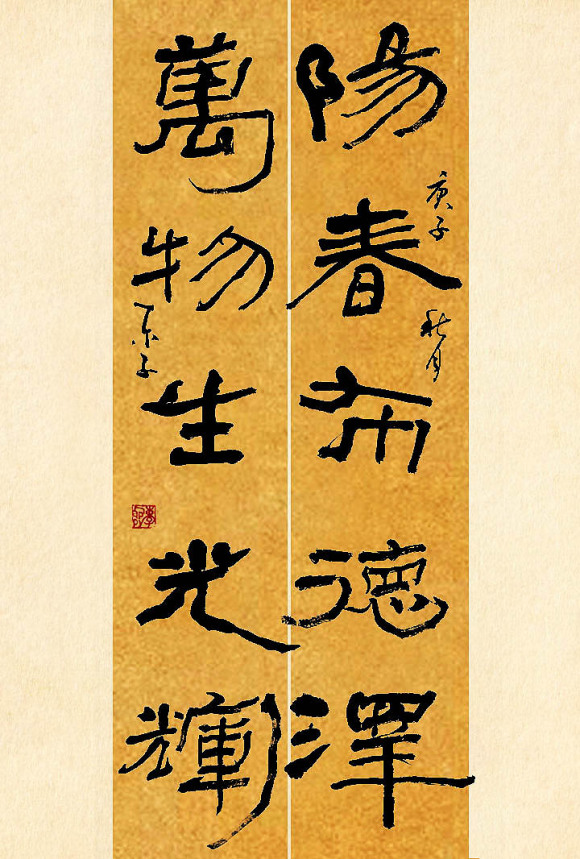 陽春布德澤
庚子
秋月
萬物生光輝